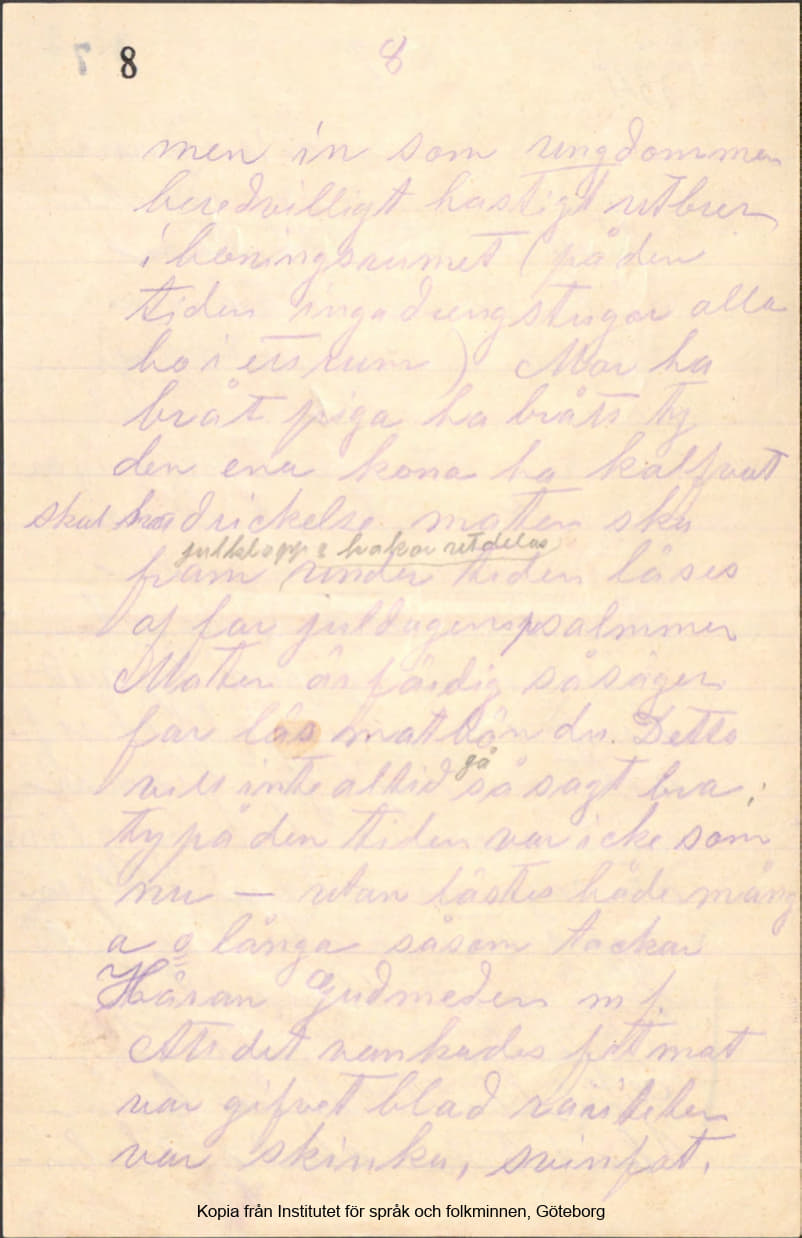 8 8
men in som ungdommen
beredvilligt hastigt utbrer
i boningsrumet (på den
tiden inga drengstugor alla
bo i ett rum) Mor ha
bråt piga ha bråts ty
den ena kona ha kalfvat
skal ha drickelse maten ska
julklapp & kakor utdelas
fram under tiden läses
af far juldagens psalmmer
Maten är färdig så säger
far läs matbön du. Detta
vill inte altid gå så sagt bra;
ty på den tiden var icke som
nu — utan lästes både mång
a o långa såsom tackar
Håran Gudmeden m f.
Att det vankades fet mat
var gifvet blad rariteter
var skinka, svinfot.
Kopia från Institutet för språk och folkminnen, Göteborg